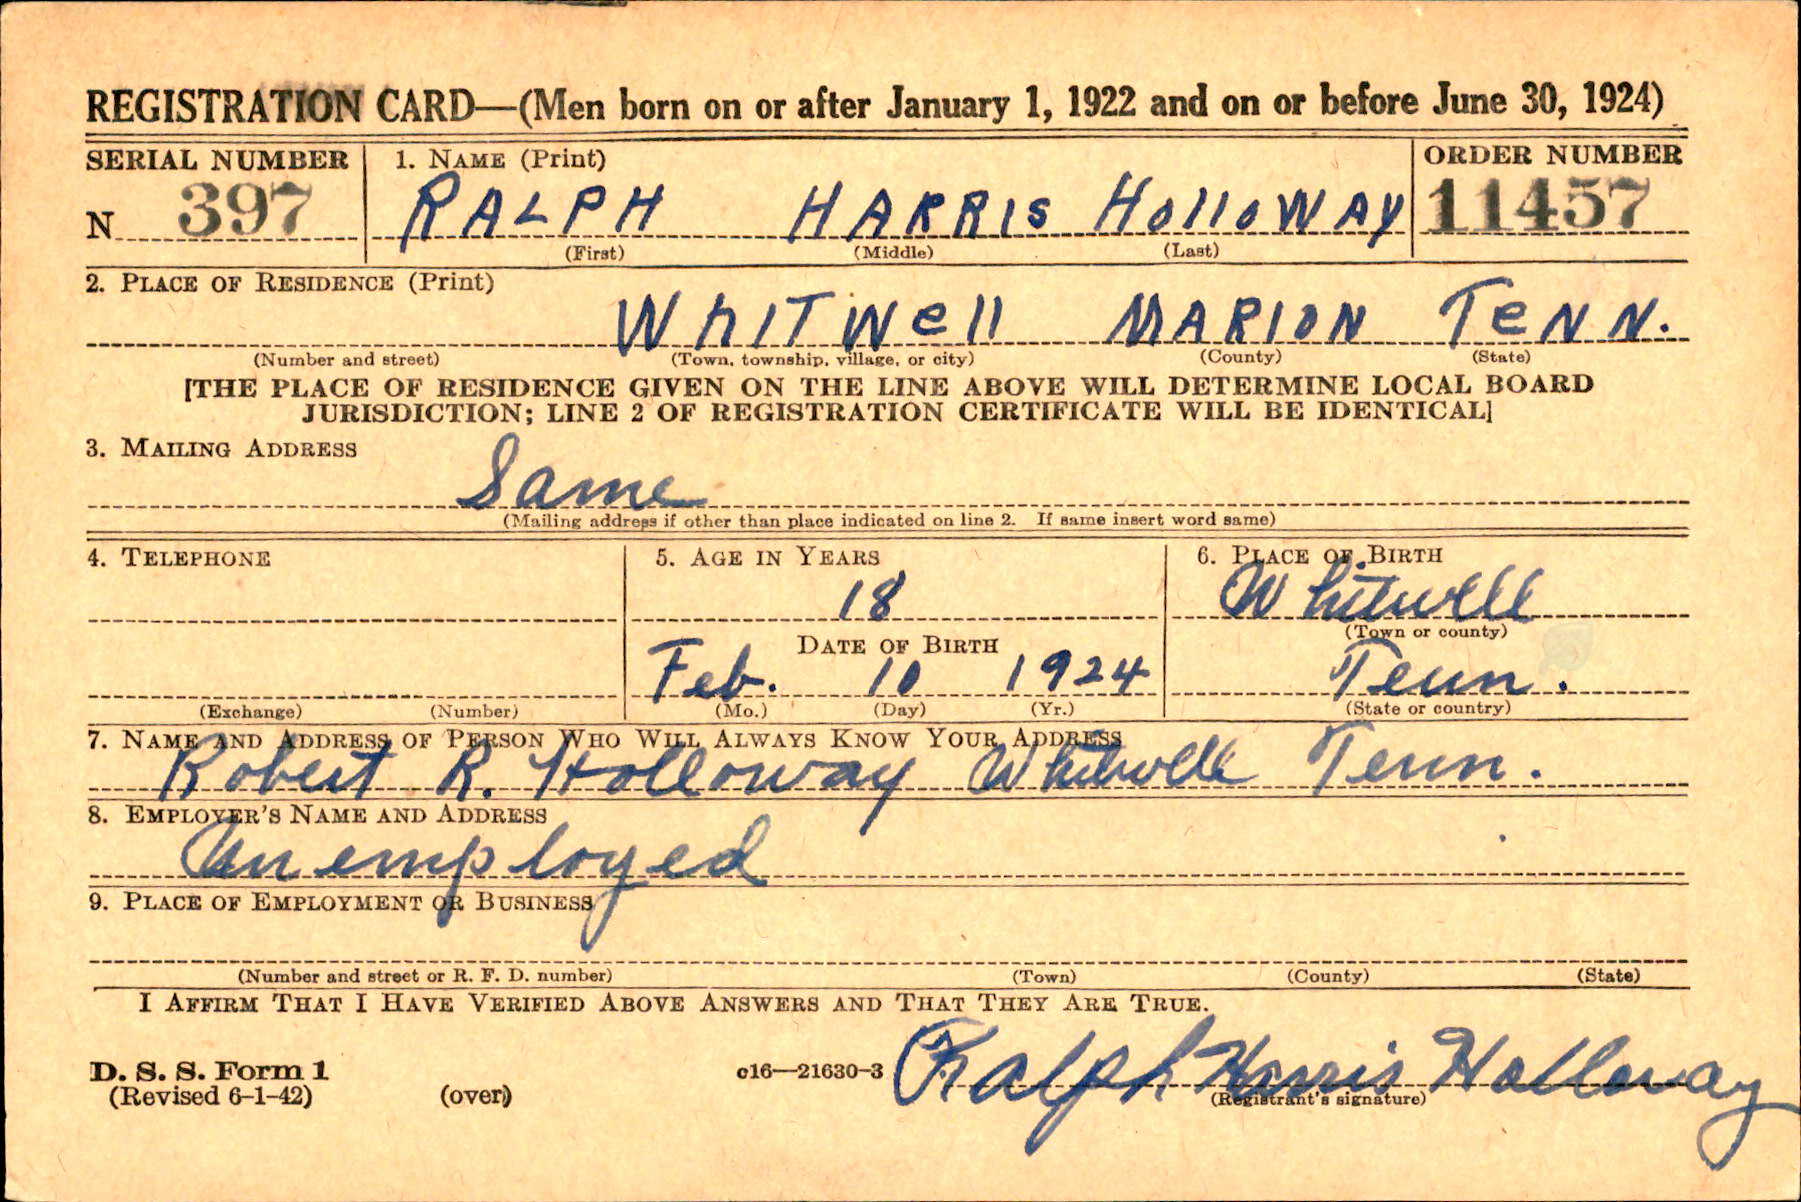 REGISTRATION CARD—(Men born on or after January 1, 1922 and on or before June 30, 1924)
SERIAL NUMBER 1. NAME (Print) ORDER NUMBER
N 397 RALPH HARRIS HollowAY 11457
(First) (Middle) (Last)
2. PLACE OF RESIDENCE (Print)
WhITWell MARION TeNN.
(Number and street) (Town, township, village, or city) (County) (State)
[THE PLACE OF RESIDENCE GIVEN ON THE LINE ABOVE WILL DETERMINE LOCAL BOARD
JURISDICTION; LINE 2 OF REGISTRATION CERTIFICATE WILL BE IDENTICAL]
3. MAILING ADDRESS
Same
(Mailing address if other than place indicated on line 2. If same insert word same)
4. TELEPHONE 5. AGE IN YEARS 6. PLACE OF BIRTH
18 Whitwell
DATE OF BIRTH (Town or county)
Feb. 10 1924 Tenn.
(Exchange) (Number) (Mo.) (Day) (Yr.) (State or country)
7. NAME AND ADDRESS OF PERSON WHO WILL ALWAYS KNOW YOUR ADDRESS
Robert R. Holloway Whitwell Tenn.
8. EMPLOYER'S NAME AND ADDRESS
Unemployed
9. PLACE OF EMPLOYMENT OR BUSINESS
(Number and street or R. F. D. number) (Town) (County) (State)
I AFFIRM THAT I HAVE VERIFIED ABOVE ANSWERS AND THAT THEY ARE TRUE.
D. S. S. Form 1 c16—21630-3 Ralph Harris Holloway
(Revised 6-1-42) (over) (Registrant's signature)